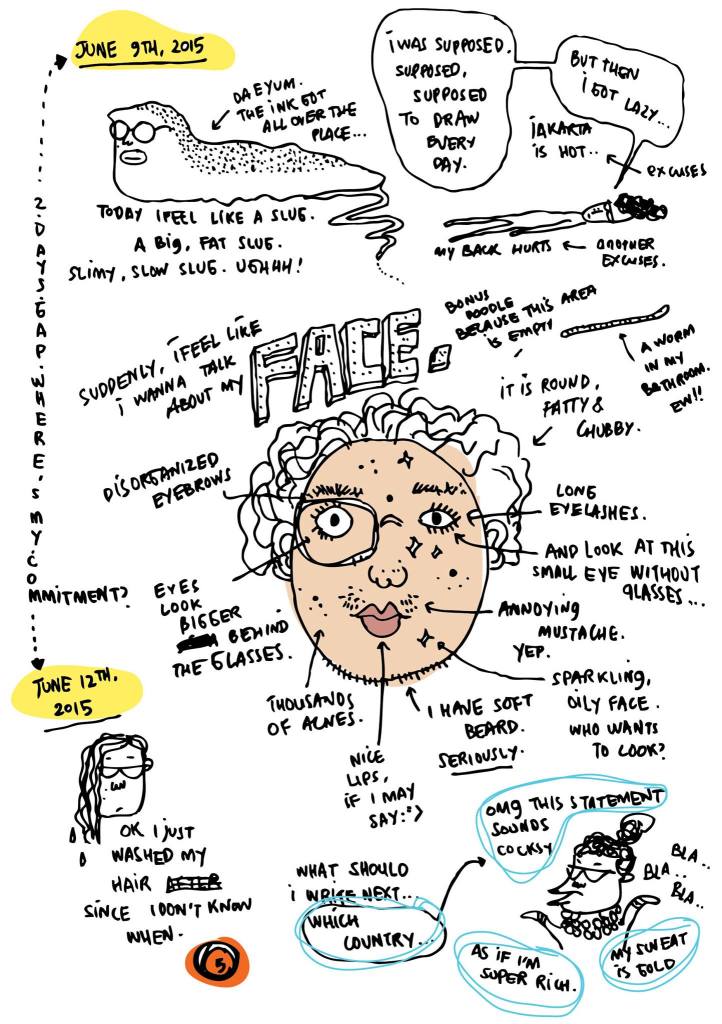 JUNE 9TH, 2015
DAEYUM.
THE INK GOT
ALL OVER THE
PLACE...
TODAY I FEEL LIKE A SLUG.
A BIG, FAT SLUG.
SLIMY, SLOW SLUG. UGHHH!
I WAS SUPPOSED.
SUPPOSED,
SUPPOSED
TO DRAW
EVERY
DAY.
BUT THEN
I GOT LAZY...
JAKARTA
IS HOT..
EXCUSES
MY BACK HURTS
ANOTHER
EXCUSES.
2.DAYS.GAP.WHERE'S MY COMMITMENT?
SUDDENLY, I FEEL LIKE
I WANNA TALK
ABOUT MY
FACE.
BONUS
DOODLE
BECAUSE THIS AREA
IS EMPTY
A WORM
IN MY
BATHROOM.
EW!!
IT IS ROUND,
FATTY &
CHUBBY.
DISORGANIZED
EYEBROWS
LONG
EYELASHES.
AND LOOK AT THIS
SMALL EYE WITHOUT
GLASSES...
EYES
LOOK
BIGGER
BEHIND
THE GLASSES.
ANNOYING
MUSTACHE.
YEP.
SPARKLING,
OILY FACE.
WHO WANTS
TO COOK?
THOUSANDS
OF ACNES.
NICE
LIPS,
IF I MAY
SAY:">
I HAVE SOFT
BEARD.
SERIOUSLY.
JUNE 12TH,
2015
OK I JUST
WASHED MY
HAIR AFTER
SINCE I DON'T KNOW
WHEN.
5
WHAT SHOULD
I WRITE NEXT...
WHICH
COUNTRY...
OMG THIS STATEMENT
SOUNDS
COCKSY
BLA..
BLA..
BLA..
AS IF I'M
SUPER RICH.
MY SWEAT
IS GOLD